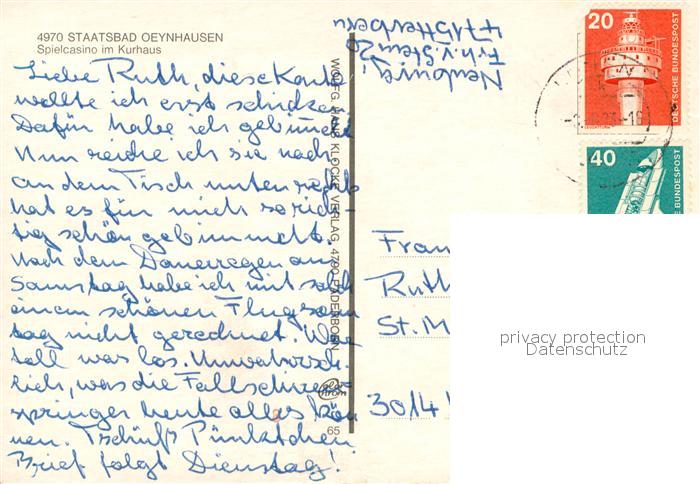 4970 STAATSBAD OEYNHAUSEN
Spielcasino im Kurhaus
Liebe Ruth, diese Karte
wollte ich erst schicken.
Dafür habe ich gebimmelt
Nun reiche ich sie nach
an dem Tisch unten rechts
hat es für mich so rich-
tig schön gebimmelt.
Nach dem Dauerregen am
Samstag habe ich mit solch
einem schönen Flugsonn
tag nicht gerechnet. War
toll was los. Unwahrsch-
lich, was die Fallschirm-
springer heute alles kön
nen. Tschüß Pünktchen
Brief folgt Dienstag!
WOLFG. HANS KLOCKE VERLAG, 4790 PADERBORN
65
Neuburg,
Frh. v. Stein 20
Fran
Ruth
St. M
3014
20
DEUTSCHE BUNDESPOST
LEUCHTTURM
40
BUNDESPOST
privacy protection
Datenschutz